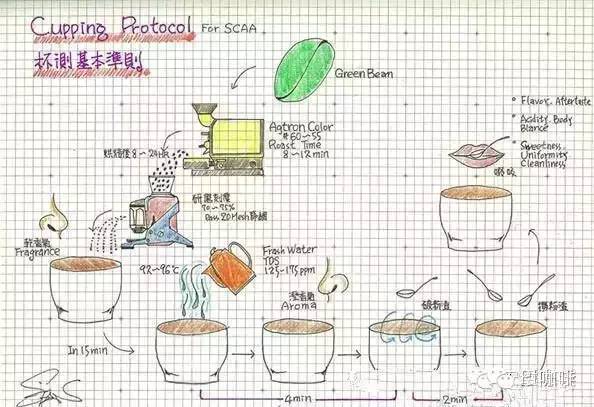 Cupping Protocol For SCAA
杯測基本準則
Green Bean
Agtron Color
# 60~55
Roast Time
8~12min
烘焙後 8~24HR
研磨刻度
70~75%
Pass 20 Mesh篩網
乾香氣
Fragrance
In 15min
92~96℃
Fresh Water
TDS
125~175ppm
溼香氣
Aroma
4min
破粉渣
2min
撈粉渣
Flavor. Aftertaste
Acidity. Body
Blance
Sweetness
Uniformity
Cleanliness
咖啡